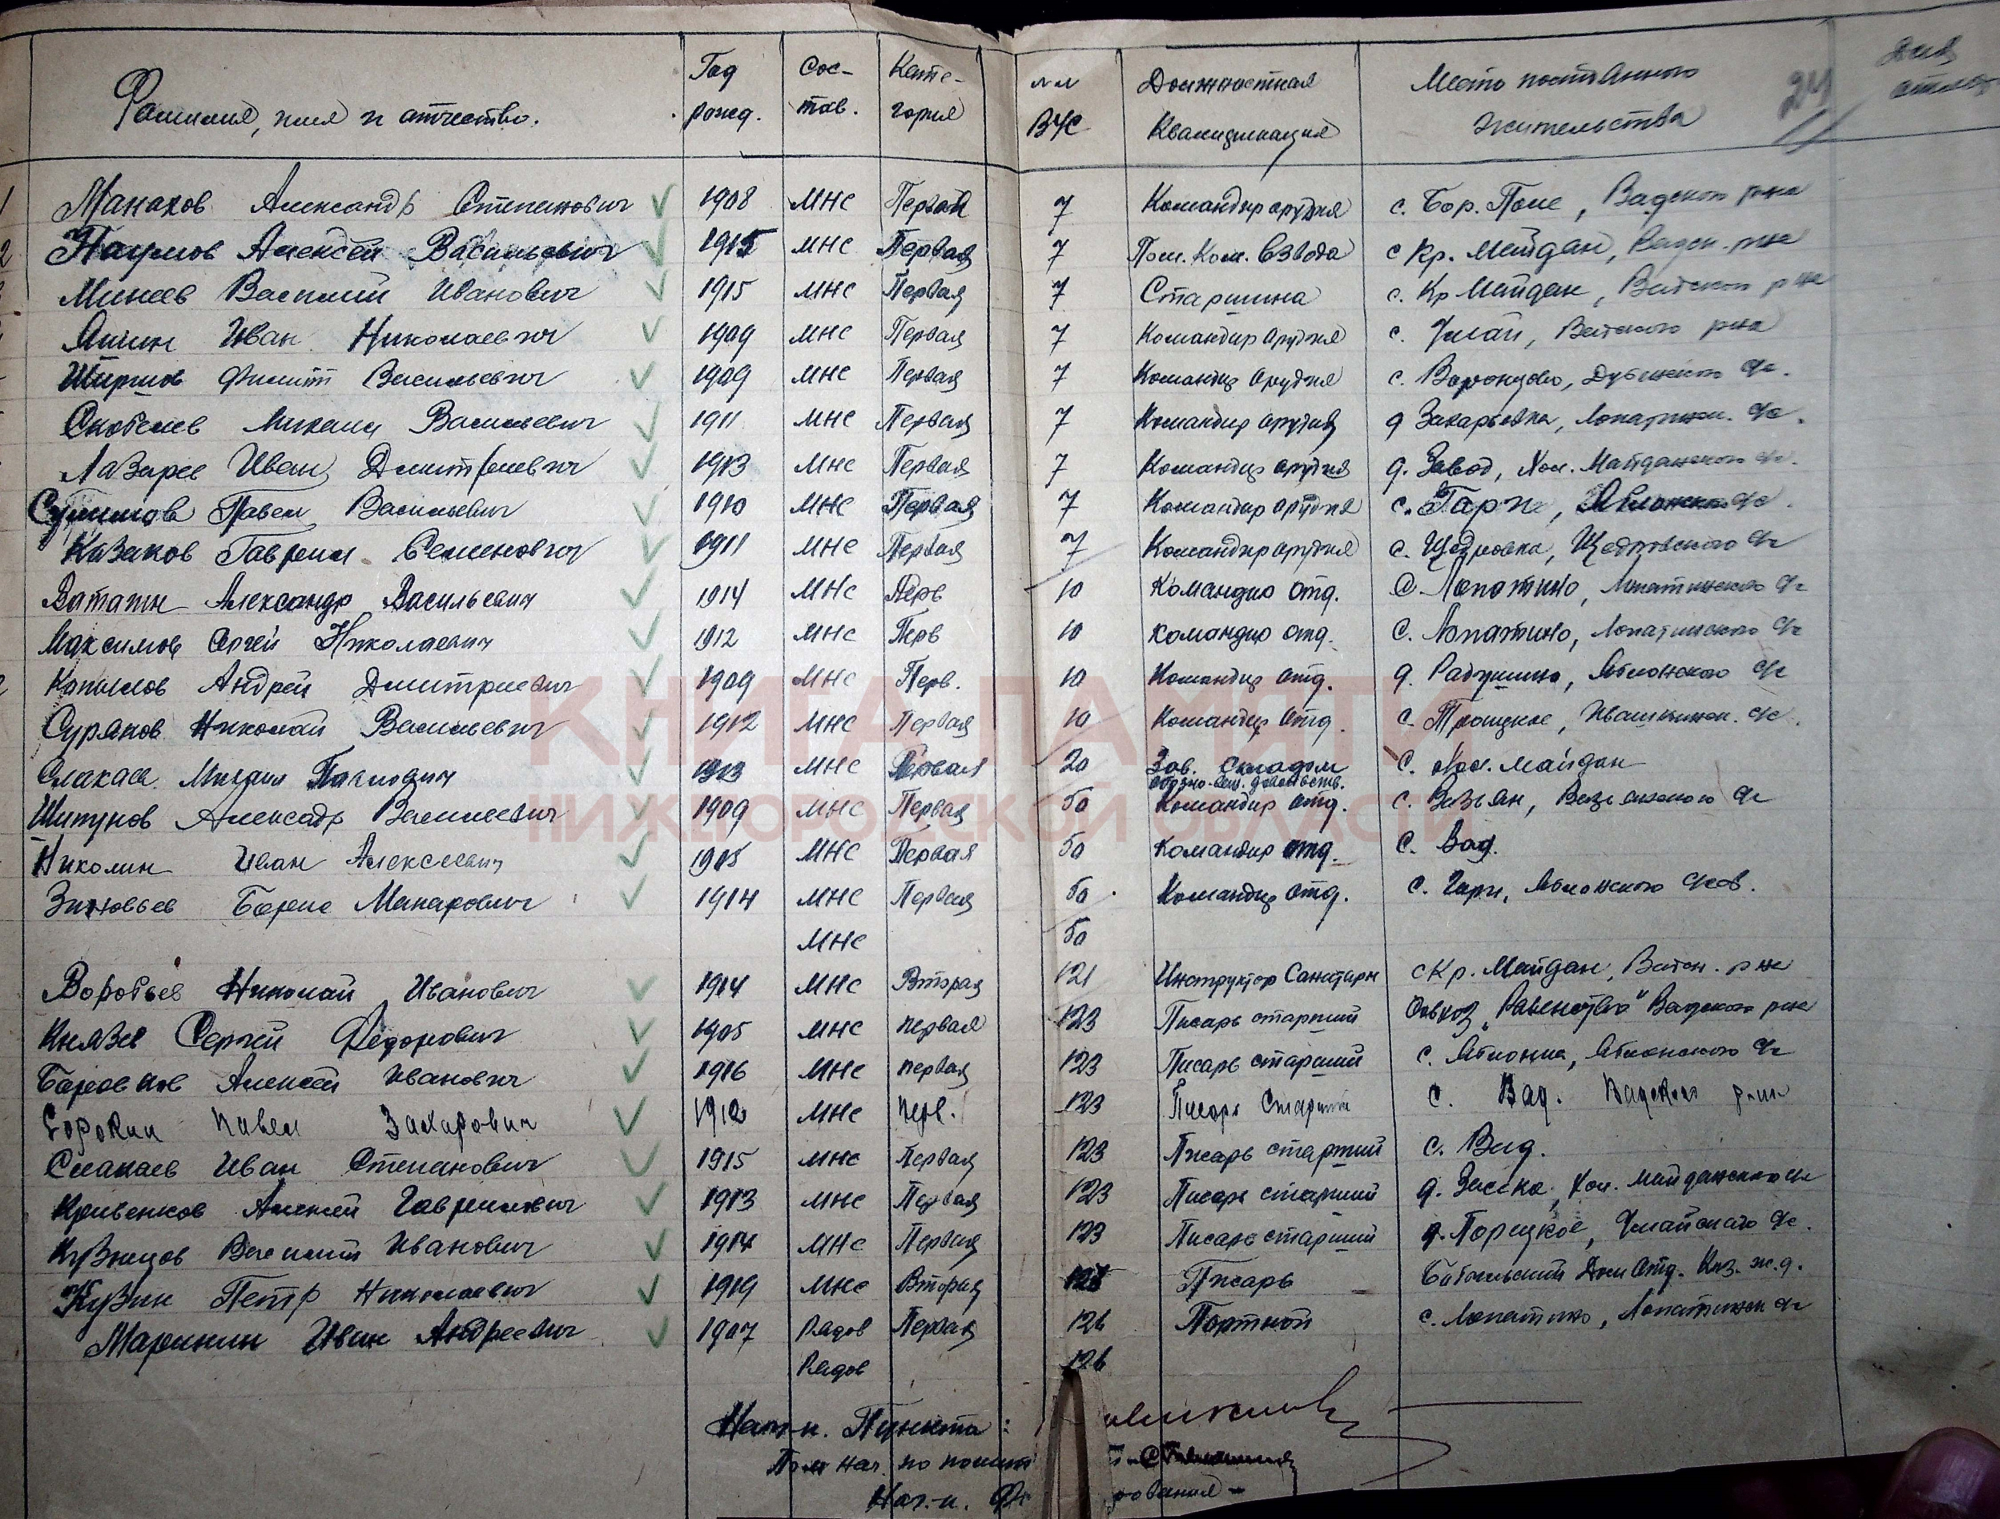 Фамилия, имя и отчество. Год рожд. Сос-тав. Кате-гория №№ ВУС Должностная Квалификация Место постоянного жительства 24
1 Манахов Александр Степанович 1908 МНС Первая 7 Командир орудия с. Бор. Поле, Вадского р-на
2 Наумов Алексей Васильевич 1915 МНС Первая 7 Пом. Ком. Взвода с Кр. Майдан, Вадск. р-на
Минеев Василий Иванович 1915 МНС Первая 7 Старшина с. Кр Майдан, Вадского р-на
Яшин Иван Николаевич 1909 МНС Первая 7 Командир Орудия с. Умай, Вадского р-на
Ширшов Филипп Васильевич 1909 МНС Первая 7 Командир Орудия с. Воронцово, Дубенского с/с.
Скобелев Михаил Васильевич 1911 МНС Первая 7 Командир орудия д Захарьевка, Лопатинск. с/с.
Лазарев Иван Дмитриевич 1913 МНС Первая 7 Командир орудия д. Завод, Кол. Майданского с/с.
Павел Васильевич 1910 МНС Первая 7 Командир орудия с. Гари, Яблонского с/с.
Казаков Гаврил Семенович 1911 МНС Первая 7 Командир орудия с. Щедровка, Щедровского с/с
Ватагин Александр Васильевич 1914 МНС Перв 10 Командир отд. С. Лопатино, Лопатинского с/с
Максимов Сергей Николаевич 1912 МНС Перв 10 командир отд. С. Лопатино, Лопатинского с/с
Копылов Андрей Дмитриевич 1909 МНС Перв. 10 Командир отд. д. Радушино, Яблонского с/с
Суряков Николай Васильевич 1912 МНС Первая 10 Командир отд с. Троицкое, Ивашкинск. с/с.
Михаил Павлович 1913 МНС Первая 20 Зав. складом обозно-вещ. довольств. с. Кол. майдан
Шипунов Александр Васильевич 1909 МНС Первая 50 Командир отд. с. Вазьян, Вазьянского с/с
Николин Иван Алексеевич 1915 МНС Первая 50 Командир отд. с. Вад.
Зиновьев Борис Макарович 1914 МНС Первая 50 Командир отд. с. Гари, Яблонского с/сов.
МНС 50
Воробьев Николай Иванович 1914 МНС Вторая 121 Инструктор Санитарн с Кр. Майдан, Вадск. р-на
Князев Сергей Федорович 1905 МНС первая 123 Писарь старший Совхоз „Равенство" Вадского р-на
Алексей Иванович 1916 МНС первая 123 Писарь старший с. Яблонка, Яблонского с/с
Сорокин Павел Захарович 1912 МНС перв. 123 Писарь Старший с. Вад. Вадского р-на
Смакаев Иван Степанович 1915 МНС Первая 123 Писарь старший с. Вад.
Кривенков Алексей Гаврилович 1913 МНС Первая 123 Писарь старший д. Засека, Кол. майданского с/с
Кузнецов Василий Иванович 1914 МНС Первая 123 Писарь старший д. Порецкое, Умайского с/с.
Кузин Петр Николаевич 1919 МНС Вторая 125 Писарь Дом Отд. Каз. ж.д.
Маринин Иван Андреевич 1907 Рядов Первая 126 Портной с. Лопатино, Лопатинск с/с
Рядов 126
Нач-к. Пункта:
Пом нач. по полит
Нач-к.
КНИГА ПАМЯТИ
НИЖЕГОРОДСКОЙ ОБЛАСТИ